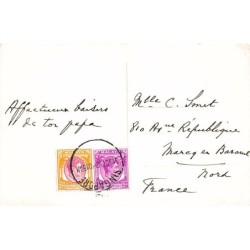 Affectueux baisers
de ton papa
Mlle C. Smet
810 Ave République
Marcq en Barœul
Nord
France
MALAYA